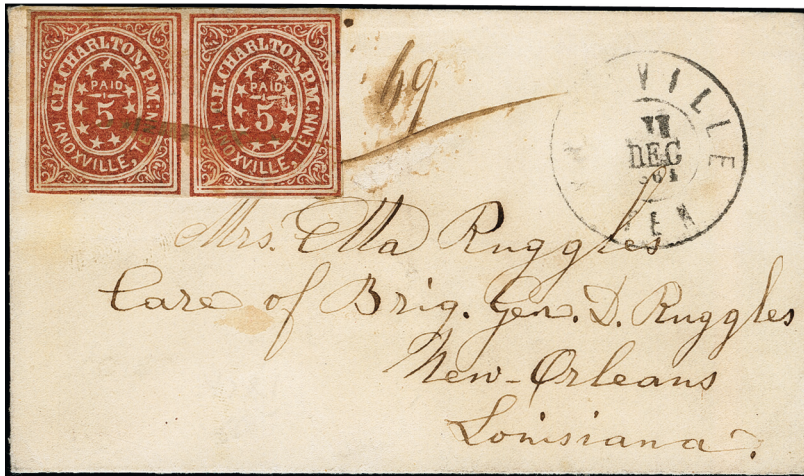 C.H. CHARLTON, P.M:
PAID
5
KNOXVILLE, TENN:
C.H. CHARLTON, P.M:
PAID
5
KNOXVILLE, TENN:
69
VILLE
11
DEC
TEN
Mrs. Etta Ruggles
Care of Brig. Gen. D. Ruggles
New-Orleans
Louisiana.